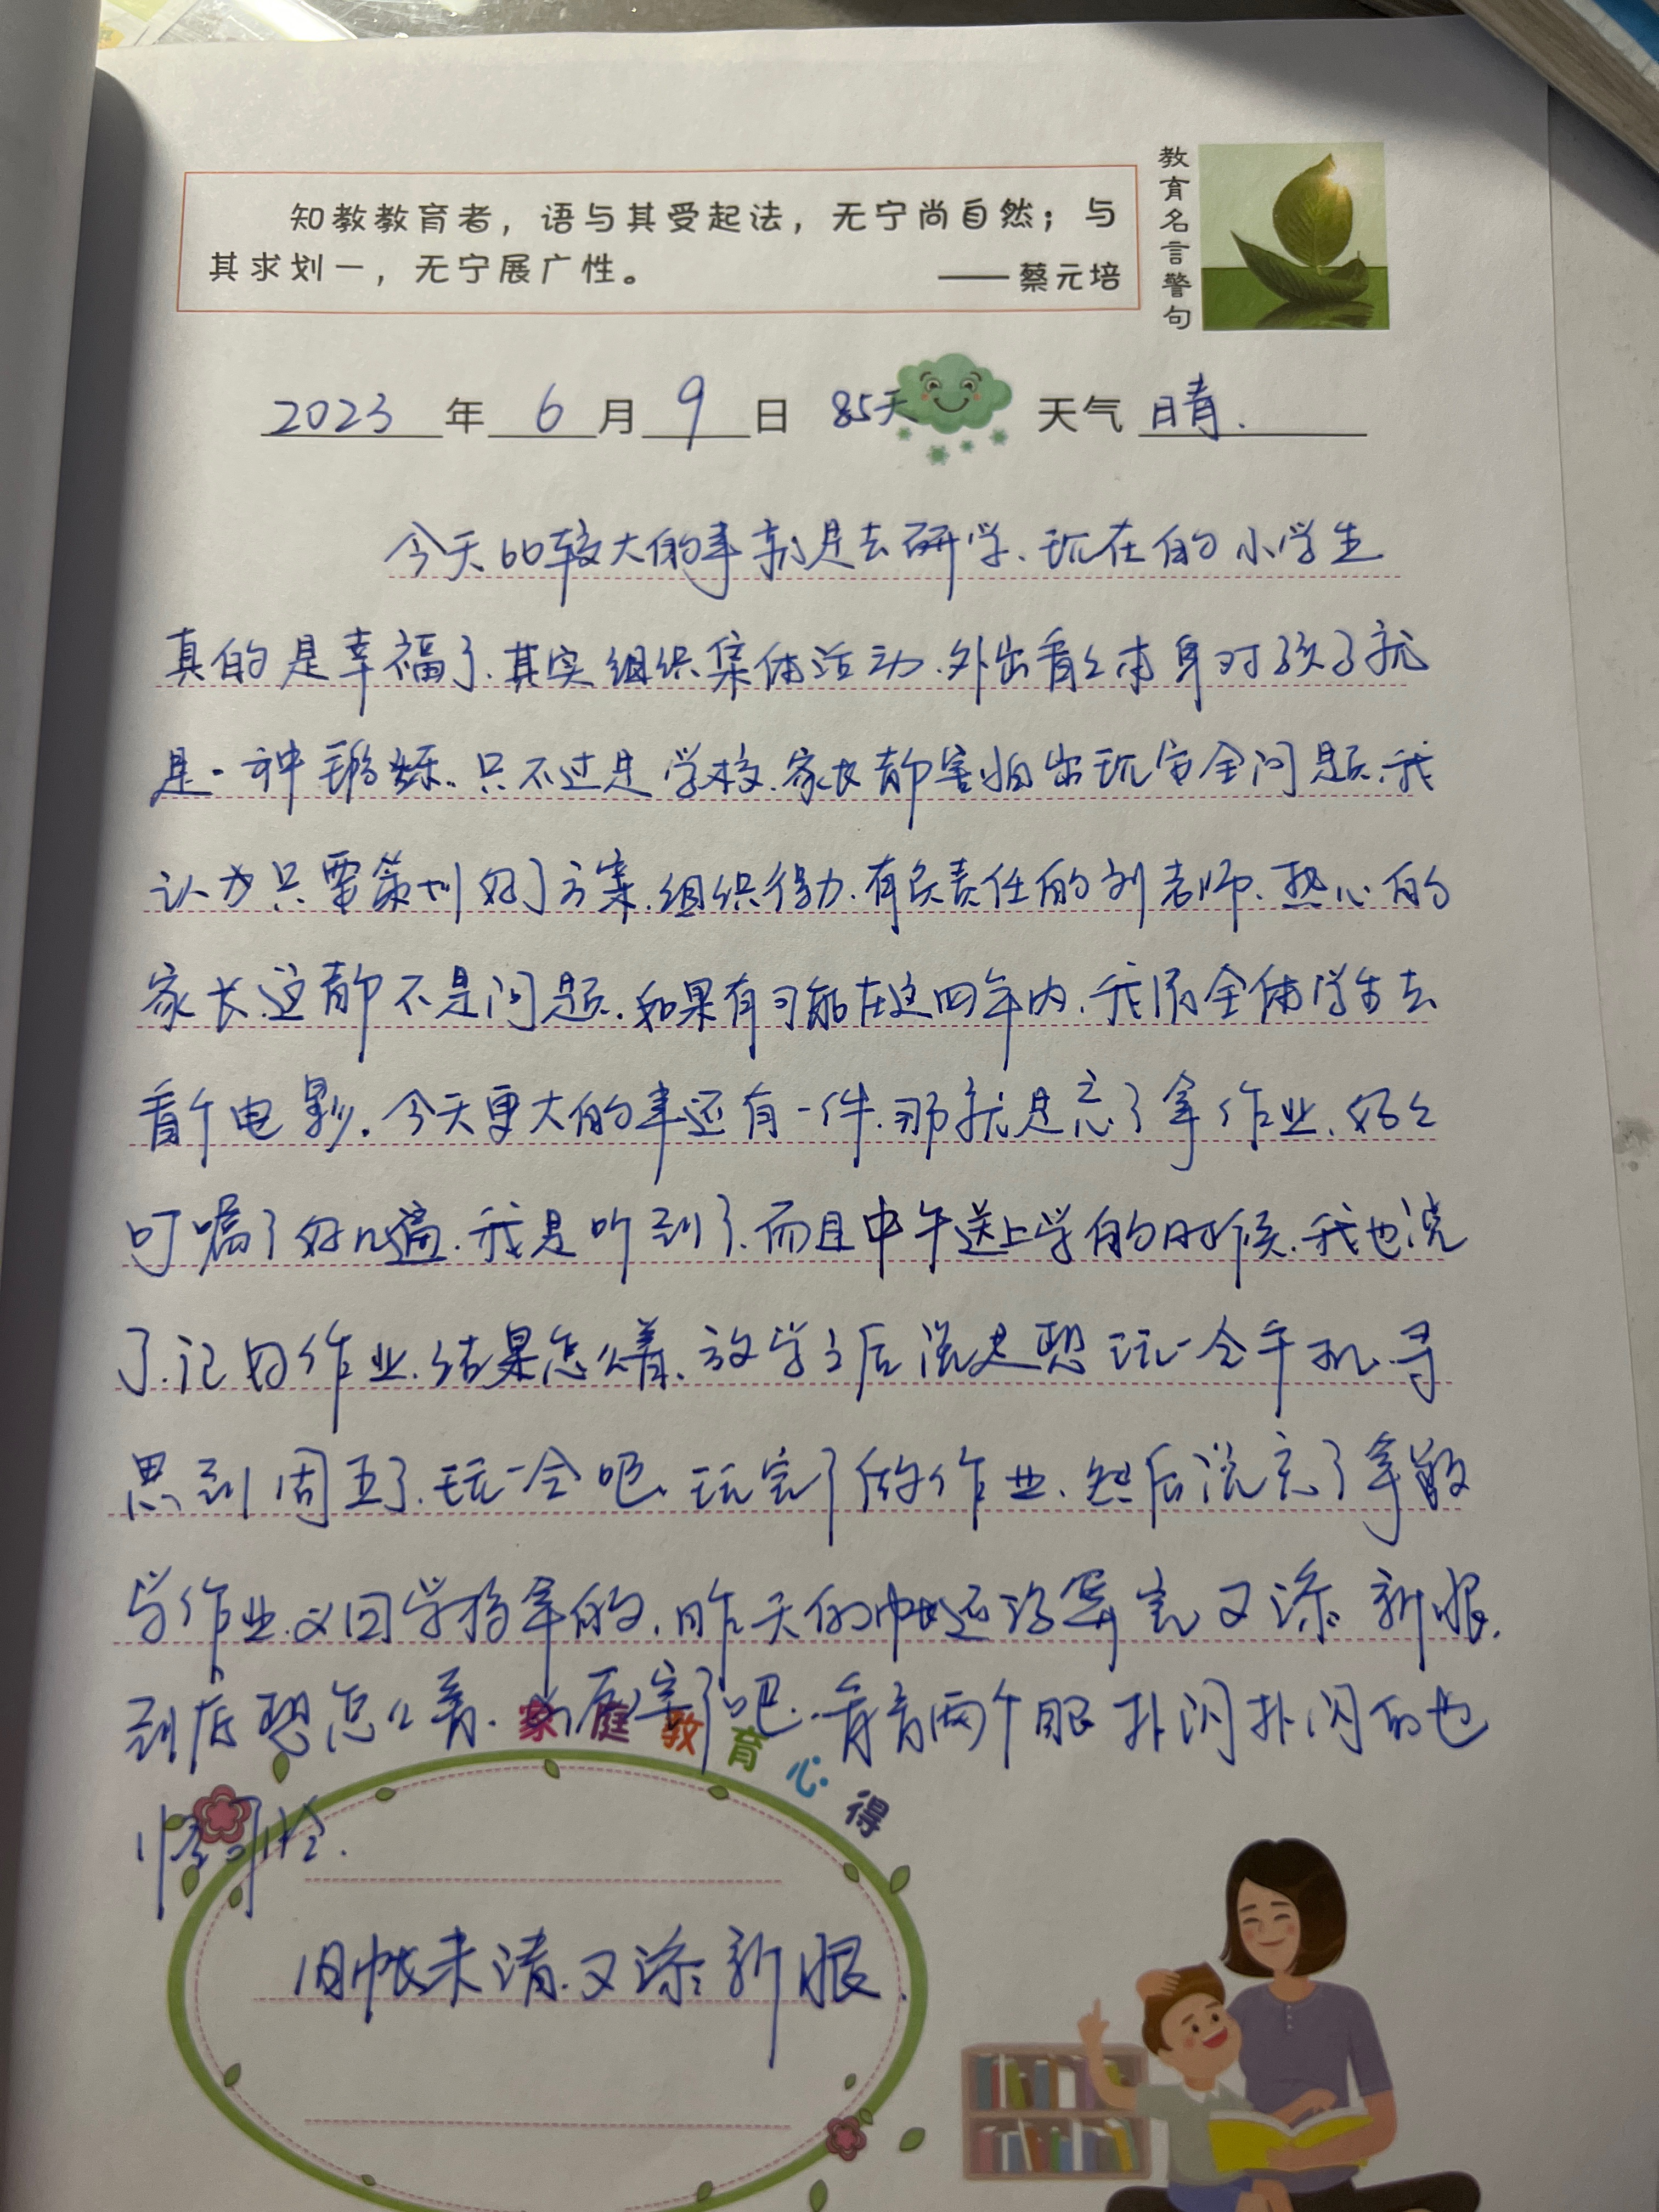 知教教育者，语与其受起法，无宁尚自然；与
其求划一，无宁展广性。 ——蔡元培
教育名言警句
2023年6月9日 85天 天气 晴.
今天比较大的事就是去研学.现在的小学生
真的是幸福了.其实组织集体活动.外出看看本身对孩子就
是一种锻炼.只不过是学校.家长都害怕出现安全问题.我
认为只要策划好了方案.组织得力.有负责任的刘老师.热心的
家长.这都不是问题.如果有可能在这四年内.我请全体学生去
看个电影.今天更大的事还有一件.那就是忘了拿作业.好好
叮嘱了好几遍.我是听到了.而且中午送上学的时候.我也说
了.记的作业.结果怎么着.放学之后说是想玩一会手机.寻
思到周五了.玩一会吧.玩完了做作业.然后说忘了拿数
学作业.又回学校拿的.昨天的帐还没算完又添新恨.
到底想怎么着.了吧..看看两个眼扑闪扑闪的也
怪可怜.
家庭教育心得
旧帐未清.又添新恨.